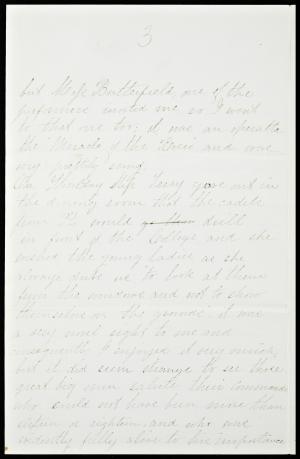 3
but Miss Butterfield, one of the
performers invited me so I went
to that one too; it was an operetta
the Miracle of the Roses and was
very prettily sung.
On Thursday Miss Terry gave out in
the dining room that the cadets
from would drill
in front of the College and she
wished the young ladies as she
always did to look at them
from the windows and not to show
themselves on the grounds. it was
a very novel sight to me and
consequently I enjoyed it very much,
but it did seem strange to see those
great big men salute their commander
who could not have been more than
sixteen or eighteen, and who was
evidently fully alive to his importance